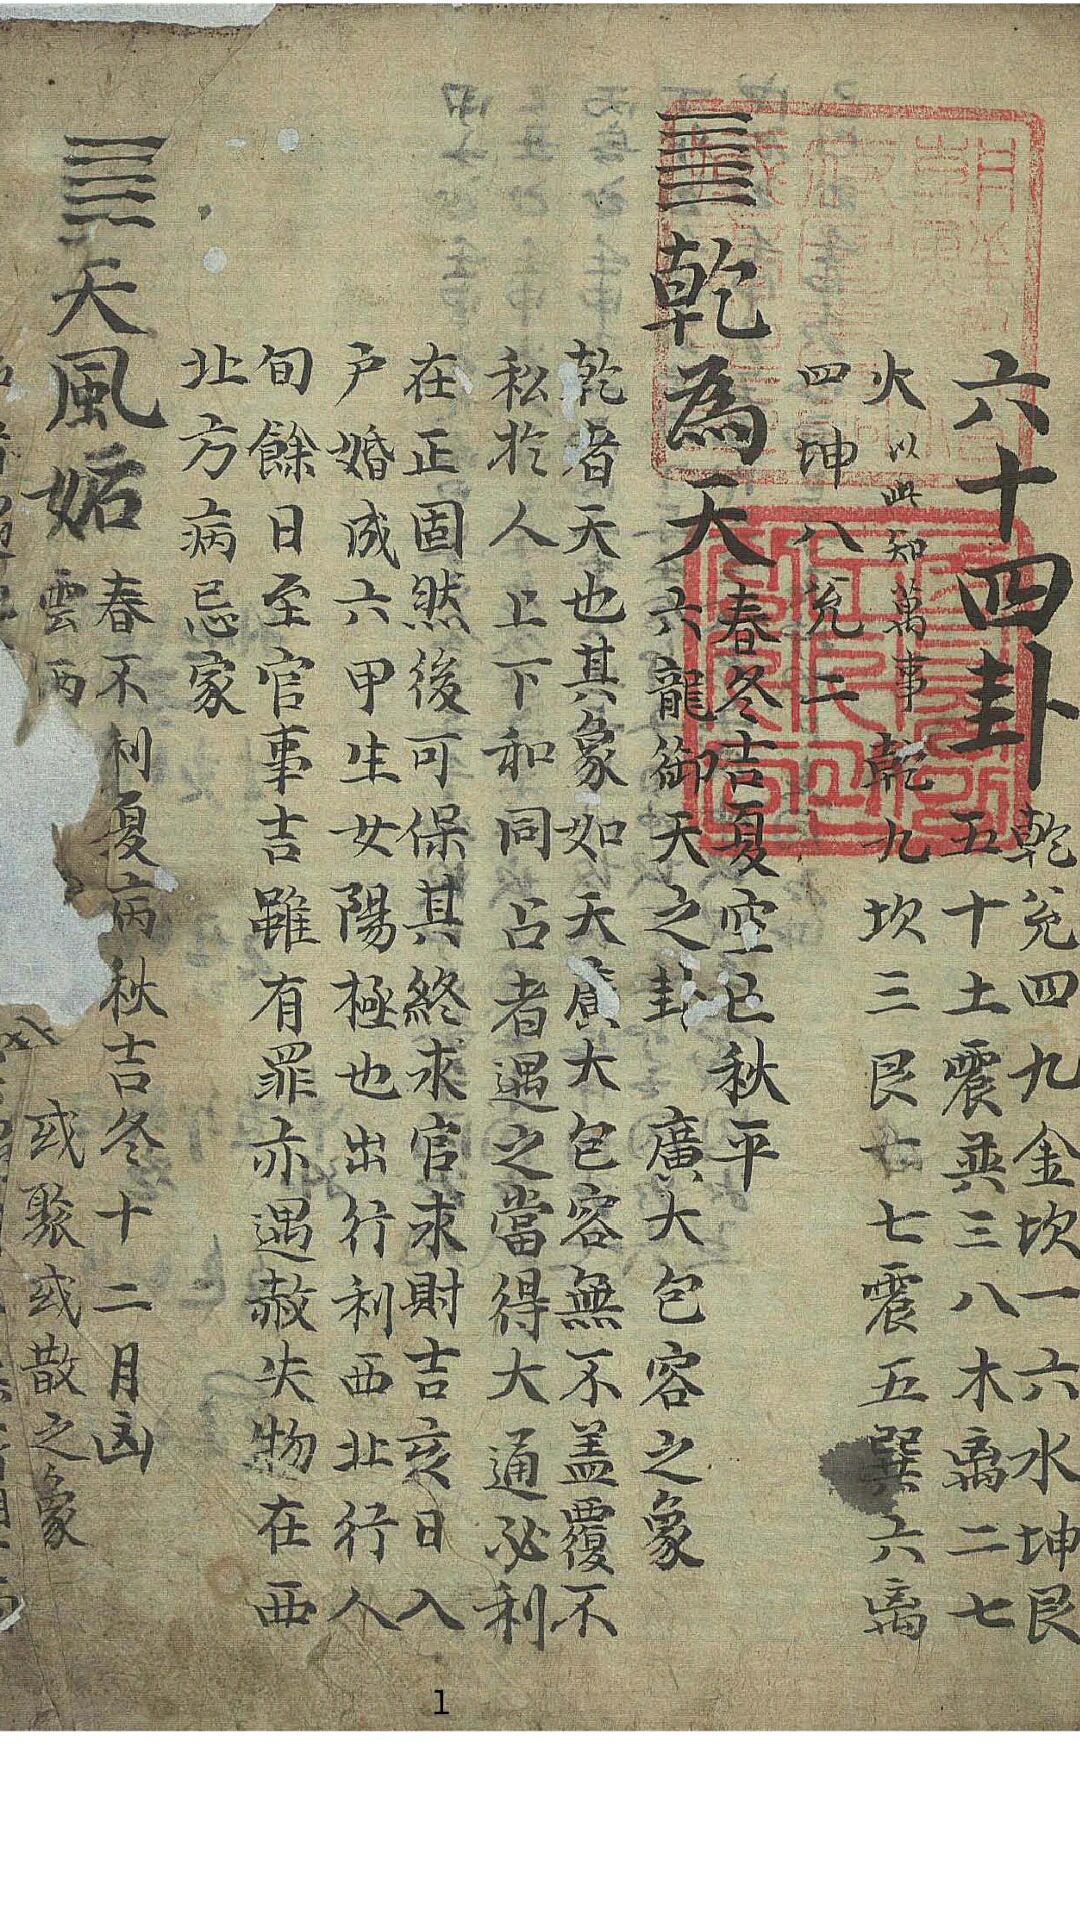 六十四卦
乾兌四九金坎一六水坤艮
五十土震巽三八木离二七
火以此知萬事乾九坎三艮七震五巽六离
四坤八兌二
乾為天
春冬吉夏空亡秋平
六龍御天之卦 廣大包容之象
乾者天也其象如天廣大包容無不盖覆不
私於人上下和同占者遇之當得大通必利
在正固然後可保其終求官求財吉亥日入
户婚成六甲生女陽極也出行利西北行人
旬餘日至官事吉雖有罪亦遇赦失物在西
北方病忌家
天風姤
春不利夏病秋吉冬十二月凶
雲 或聚或散之象
1